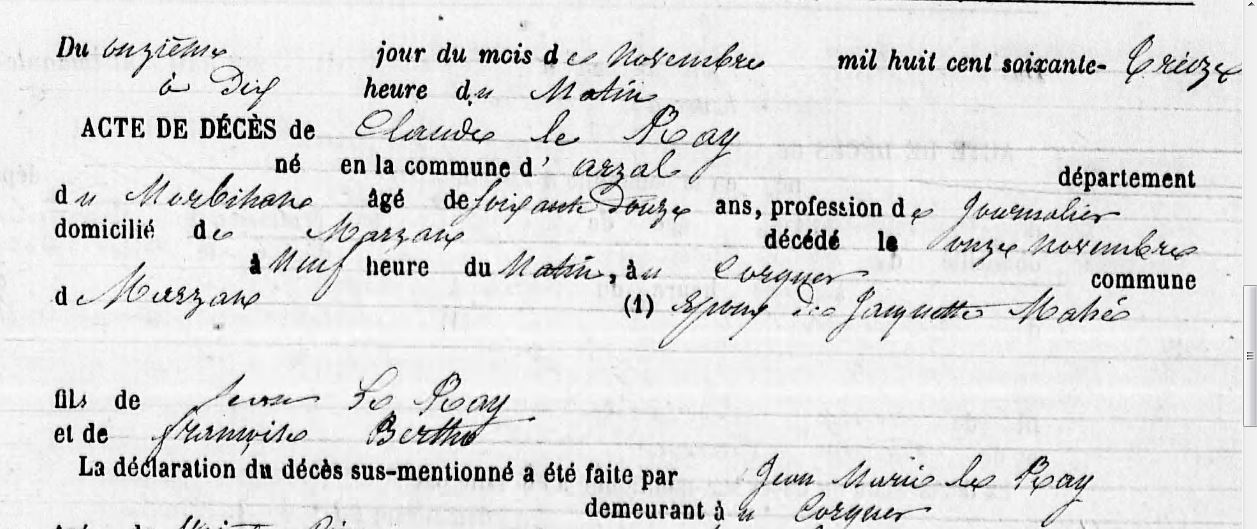 Du onzième jour du mois de Novembre mil huit cent soixante- treize
à Dix heure du Matin
ACTE DE DÉCÈS de Claude le Ray
né en la commune d' arzal département
du Morbihan âgé de soixante Douze ans, profession de Journalier
domicilié de Marzan décédé le onze novembre
à Neuf heure du Matin, au Corguer commune
de Marzan (1) Epoux de Jacquette Mahé
fils de Le Ray
et de françoise Bertho
La déclaration du décès sus-mentionné a été faite par Jean Marie le Ray
demeurant à u Corguer